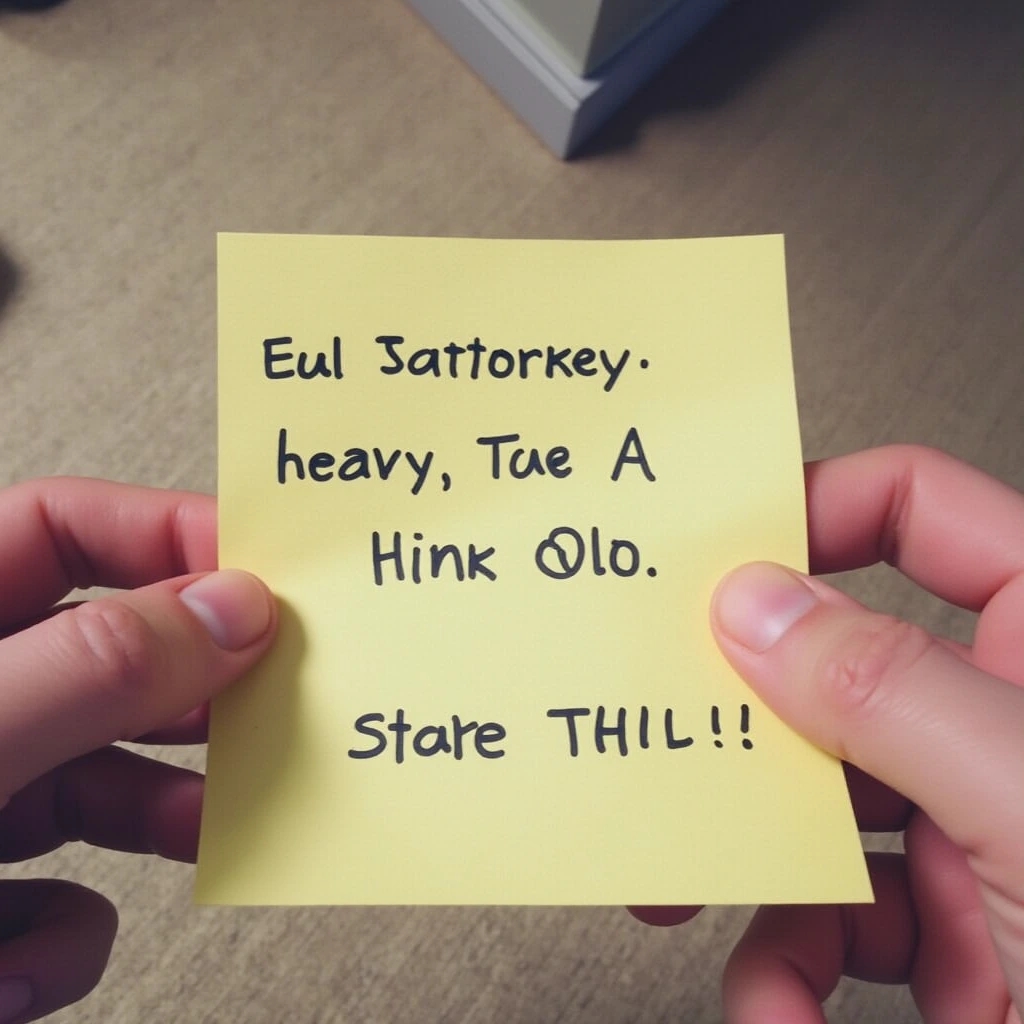 Eul Jattorkey.
heavy, Tue A
Hink Olo.
Stare THIL!!